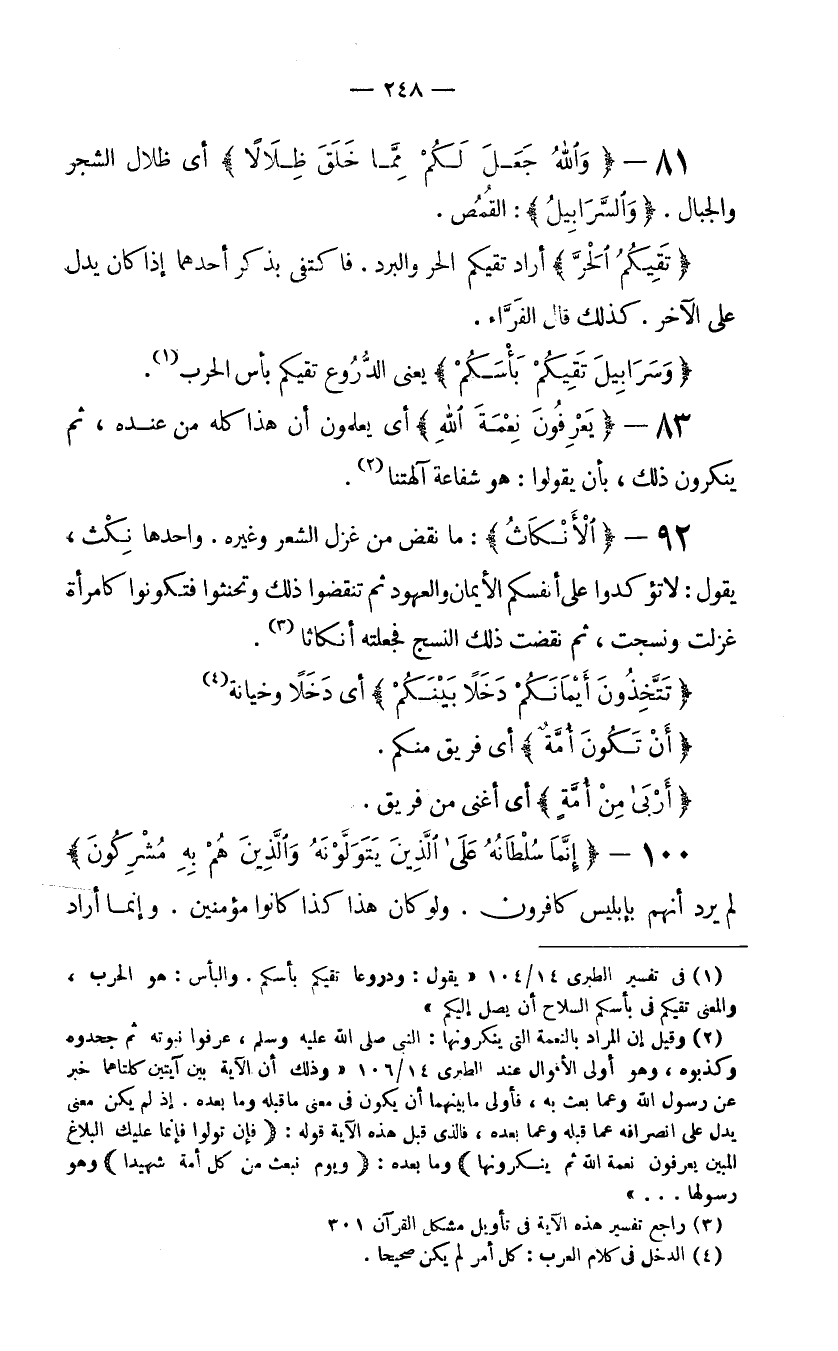 — ٢٤٨ —
٨١ — ﴿ وَٱللهُ جَعَـلَ لَـكُمْ مِمَّـا خَلَقَ ظِـلَالًا ﴾ أى ظلال الشجر
والجبال . ﴿ وَٱلسَّرَابِيلُ ﴾ : القُمُص .
﴿ تَقِيكُمُ ٱلْحَرَّ ﴾ أراد تقيكم الحر والبرد . فاكتفى بذكر أحدهما إذا كان يدل
على الآخر . كذلك قال الفَرَّاء .
﴿ وَسَرَابِيلَ تَقِيكُمْ بَأْسَـكُمْ ﴾ يعنى الدُّرُوع تقيكم بأس الحرب (١) .
٨٣ — ﴿ يَعْرِفُونَ نِعْمَةَ ٱللهِ ﴾ أى يعلمون أن هذا كله من عنـده ، ثم
ينكرون ذلك ، بأن يقولوا : هو شفاعة آلهتنا (٢) .
٩٢ — ﴿ ٱلْأَنْـكَاثُ ﴾ : ما نقض من غزل الشعر وغيره . واحدها نِكْث ،
يقول : لا تؤكدوا على أنفسكم الأيمان والعهود ثم تنقضوا ذلك وتحنثوا فتـكونوا كامرأة
غزلت ونسجت ، ثم نقضت ذلك النسج فجعلته أنكاثا (٣) .
﴿ تَتَّخِذُونَ أَيْمَانَـكُمْ دَخَلًا بَيْنَـكُمْ ﴾ أى دَخَلًا وخيانة (٤)
﴿ أَنْ تَـكُونَ أُمَّةٌ ﴾ أى فريق منكم .
﴿ أَرْبَىٰ مِنْ أُمَّةٍ ﴾ أى أغنى من فريق .
١٠٠ — ﴿ إِنَّمَا سُلْطَانُهُ عَلَىٰ ٱلَّذِينَ يَتَوَلَّوْنَهُ وَٱلَّذِينَ هُمْ بِهِ مُشْرِكُونَ ﴾
لم يرد أنهم بإبليس كافرون . ولو كان هذا كذا كانوا مؤمنين . وإنمـا أراد
(١) فى تفسير الطبرى ١٠٤/١٤ « يقول : ودروعا تقيكم بأسكم . والبأس : هو الحرب ،
والمعنى تقيكم فى بأسكم السلاح أن يصل إليكم »
(٢) وقيل إن المراد بالنعمة التى ينكرونها : النبى صلى الله عليه وسلم ، عرفوا نبوته ثم جحدوه
وكذبوه ، وهو أولى الأقوال عند الطبرى ١٠٦/١٤ « وذلك أن الآية بين آيتين كلتاهما خبر
عن رسول الله وعما بعث به ، فأولى ما بينهما أن يكون فى معنى ما قبله وما بعده . إذ لم يكن معنى
يدل على انصرافه عما قبله وعما بعده ، فالذى قبل هذه الآية قوله : ﴿ فإن تولوا فإنما عليك البلاغ
المبين يعرفون نعمة الله ثم ينـكرونها ﴾ وما بعده : ﴿ ويوم نبعث من كل أمة شهيدا ﴾ وهو
رسولها . . . »
(٣) راجع تفسير هذه الآية فى تأويل مشكل القرآن ٣٠١
(٤) الدخل فى كلام العرب : كل أمر لم يكن صحيحا .